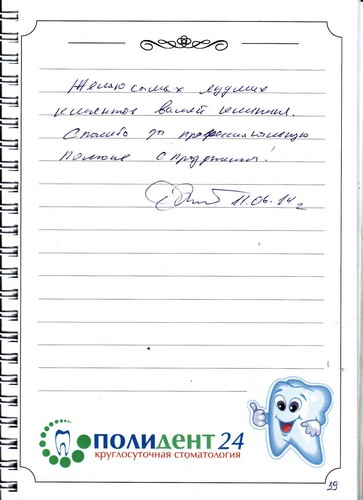 Желаю самых лучших
клиентов вашей клинике.
Спасибо за профессиональную
помощь
11.06.14 г
ПОЛИДЕНТ 24
круглосуточная стоматология
19